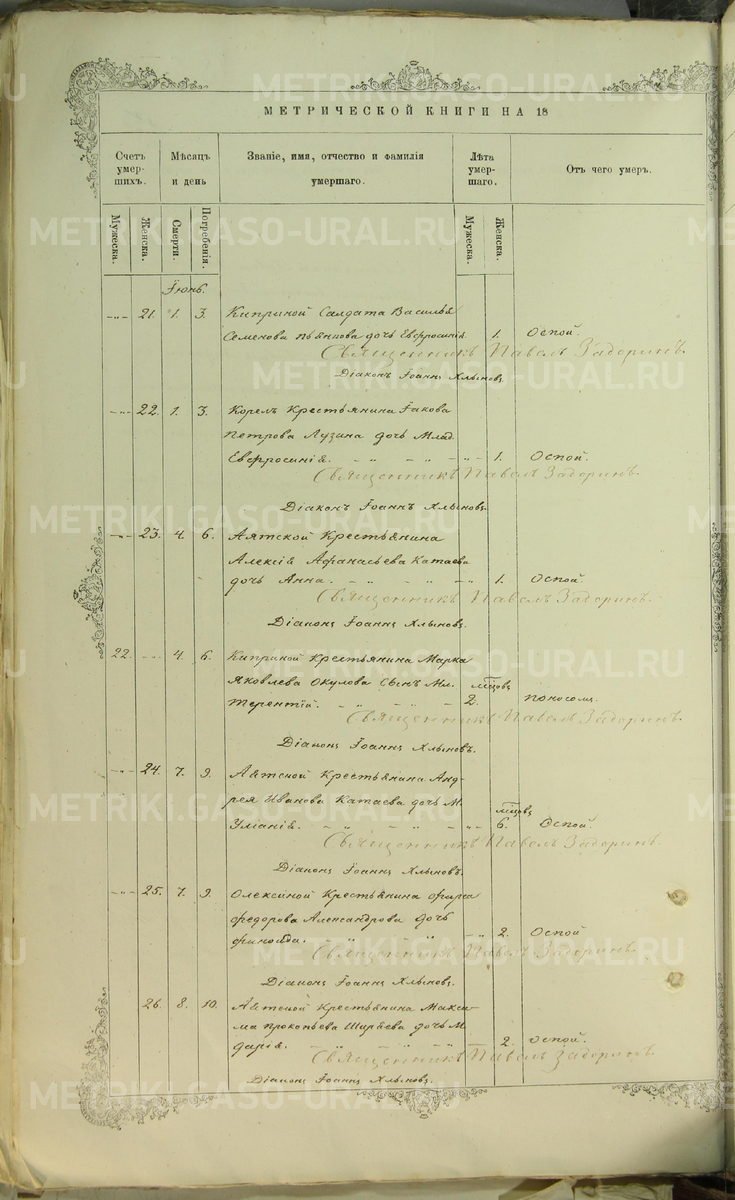 МЕТРИЧЕСКОЙ КНИГИ НА 18
Счетъ умер- шихъ. Мѣсяцъ и день Званіе, имя, отчество и фамилія умершаго. Лѣта умер- шаго. Отъ чего умеръ.
Мужеска. Женска. Смерти. Погребенія. Мужеска. Женска.
Іюнь.
-"- 21. 1. 3. Киприной Солдата Василья
Семенова Пьянкова дочь Евфросинія. 1. Оспой.
Священникъ Павелъ Задоринъ.
Діаконъ Іоаннъ Хлыновъ.
-"- 22. 1. 3. Корелъ Крестьянина Іакова
Петрова Лузина дочь Млад.
Евфросинія. - " - " - "- 1. Оспой.
Священникъ Павелъ Задоринъ.
Діаконъ Іоаннъ Хлыновъ.
-"- 23. 4. 6. Аятской Крестьянина
Алексія Афанасьева Катаева
дочь Анна. - " - " - "- 1. Оспой
Священникъ Павелъ Задоринъ.
Діаконъ Іоаннъ Хлыновъ.
22. -"- 4. 6. Киприной Крестьянина Марка
Яковлева Окулова Сынъ Мл. мѣсцовъ
Терентій. - " - " - 2. поносомъ.
Священникъ Павелъ Задоринъ.
Діаконъ Іоаннъ Хлыновъ.
-"- 24. 7. 9. Аятской Крестьянина Анд-
рея Иванова Катаева дочь М. мѣсцовъ
Уліанія. - " - " - "- 6. Оспой.
Священникъ Павелъ Задоринъ.
Діаконъ Іоаннъ Хлыновъ.
-"- 25. 7. 9. Крестьянина
Федорова Александрова дочь
- " 2. Оспой
Священникъ Павелъ Задоринъ.
Діаконъ Іоаннъ Хлыновъ.
26. 8. 10. Аятской Крестьянина Макси-
ма Прокопьева Ширяева дочь М.
Дарія. - " - " - 2. оспой.
Священникъ Павелъ Задоринъ.
Діаконъ Іоаннъ Хлыновъ.
METRIKI.GASO-URAL.RU